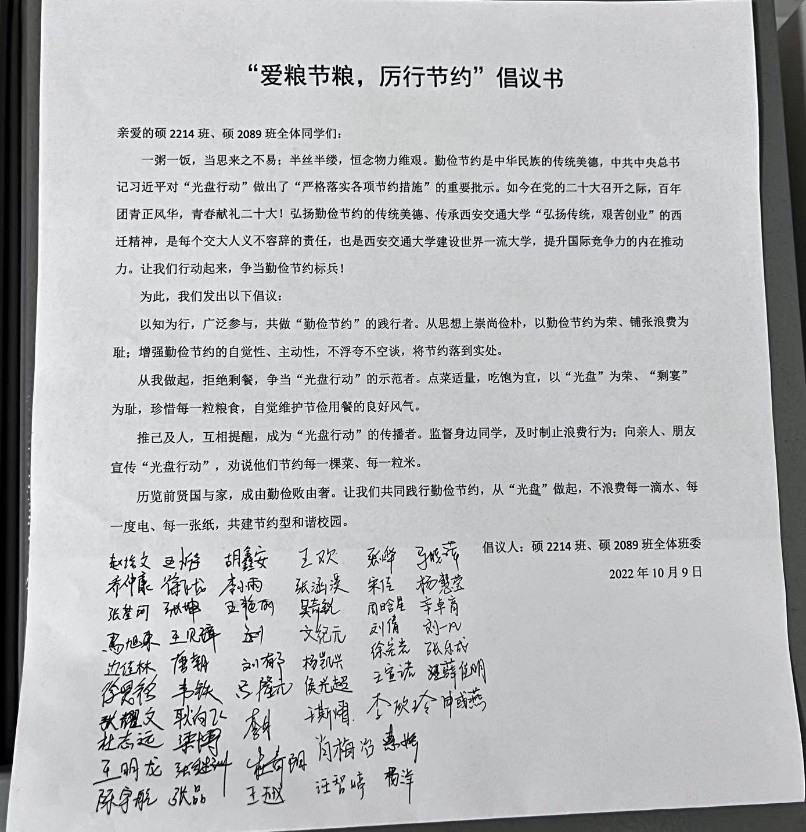 “爱粮节粮，厉行节约”倡议书
亲爱的硕 2214 班、硕 2089 班全体同学们：
一粥一饭，当思来之不易；半丝半缕，恒念物力维艰。勤俭节约是中华民族的传统美德，中共中央总书
记习近平对“光盘行动”做出了“严格落实各项节约措施”的重要批示。如今在党的二十大召开之际，百年
团青正风华，青春献礼二十大！弘扬勤俭节约的传统美德、传承西安交通大学“弘扬传统，艰苦创业”的西
迁精神，是每个交大人义不容辞的责任，也是西安交通大学建设世界一流大学，提升国际竞争力的内在推动
力。让我们行动起来，争当勤俭节约标兵！
为此，我们发出以下倡议：
以知为行，广泛参与，共做“勤俭节约”的践行者。从思想上崇尚俭朴，以勤俭节约为荣、铺张浪费为
耻；增强勤俭节约的自觉性、主动性，不浮夸不空谈，将节约落到实处。
从我做起，拒绝剩餐，争当“光盘行动”的示范者。点菜适量，吃饱为宜，以“光盘”为荣、“剩宴”
为耻，珍惜每一粒粮食，自觉维护节俭用餐的良好风气。
推己及人，互相提醒，成为“光盘行动”的传播者。监督身边同学，及时制止浪费行为；向亲人、朋友
宣传“光盘行动”，劝说他们节约每一棵菜、每一粒米。
历览前贤国与家，成由勤俭败由奢。让我们共同践行勤俭节约，从“光盘”做起，不浪费每一滴水、每
一度电、每一张纸，共建节约型和谐校园。
倡议人：硕 2214 班、硕 2089 班全体班委
2022 年 10 月 9 日
胡鑫安 王欢 张烨
乔仲康 李小雨 宋佳 杨慧莹
张坤 王艳丽 李卓育
马旭东 文纪元 刘倩 刘一凡
边佳林 唐朝 刘郁 杨凯兴
韦铁 侯光超 王宣诺
耿向飞 李欣玲
杜志远 梁博 肖梅
王明龙 崔奇明
陈宇航 张品 王越 汪智婷 杨洋